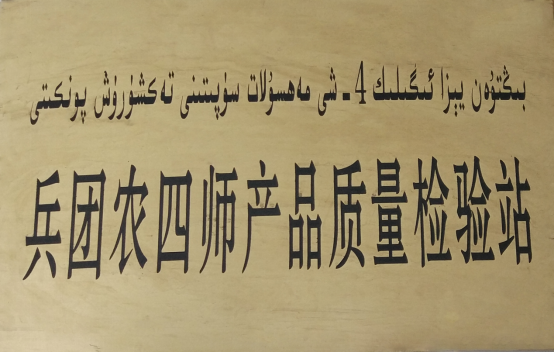 بىڭتۇەن يېزا ئىگىلىك 4-شى مەھسۇلات سۈپىتىنى تەكشۈرۈش پونكىتى
兵团农四师产品质量检验站